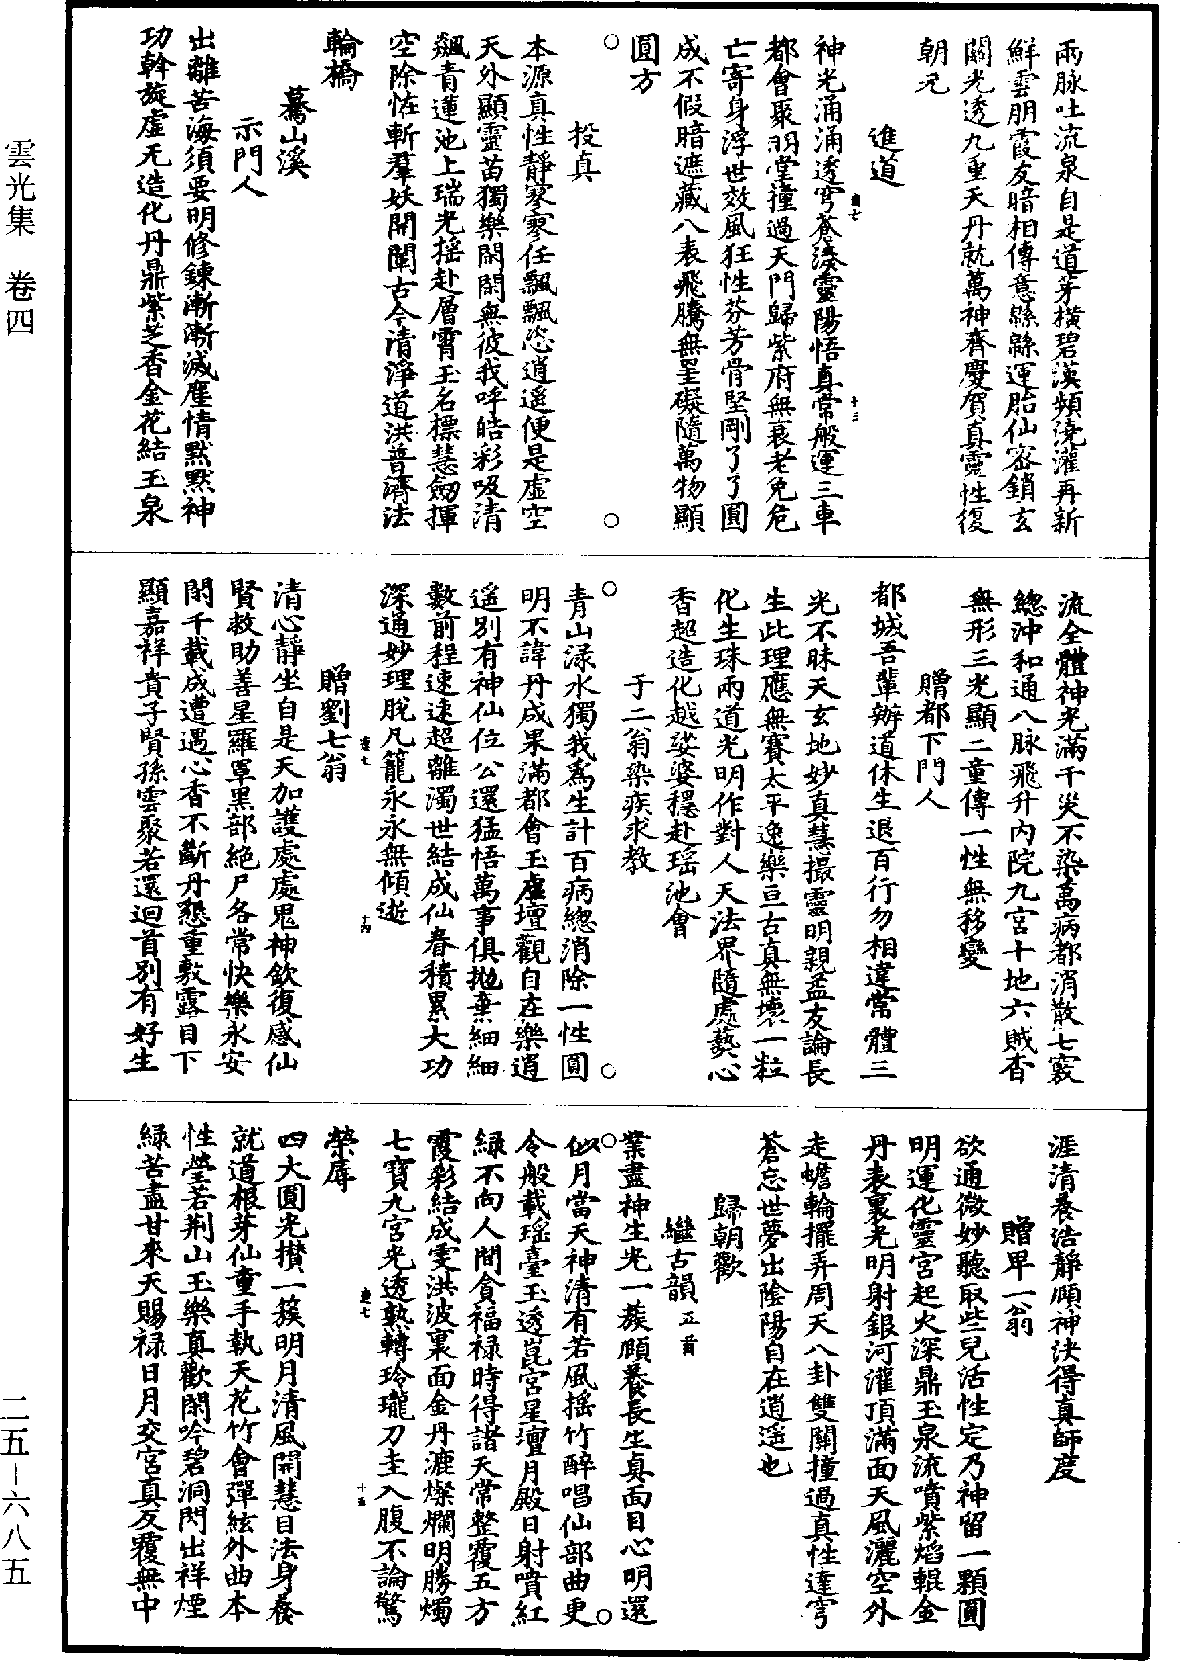 雲光集　卷四
兩脉吐流泉自是道芽橫碧漢頻澆灌再新
鮮雲朋霞友暗相傳意緜緜運胎仙密鎖玄
關光透九重天丹就萬神齊慶賀真靈性復
朝元
進道
神光涌涌透穹蒼湊靈陽悟真常般運三車
都會聚明堂撞過天門歸紫府無衰老免危
亡寄身浮世效風狂性芬芳骨堅剛了了圓
成不假暗遮藏八表飛騰無罣礙隨萬物顯
圓方
投真
本源真性靜寥寥任飄飄恣逍遥便是虛空
天外顯靈苗獨樂閑閑無彼我呼皓彩吸清
飆青蓮池上瑞光搖赴層霄玉名標慧劒揮
空除恠斬羣妖開闡古今清淨道洪普濟法
輪橋
驀山溪
示門人
出離苦海須要明修鍊漸漸減塵情默默神
功斡旋虛无造化丹鼎紫芝香金花結玉泉
流全體神光滿千災不染萬病都消散七竅
總沖和通八脉飛升內院九宮十地六賊杳
無形三光顯二童傳一性無移變
贈都下門人
都城吾輩辦道休生退百行勿相違常體三
光不昧天玄地妙真慧撮靈明親孟友論長
生此理應無賽太平逸樂亘古真無壞一粒
化生珠兩道光明作對人天法界隨處爇心
香超造化越娑婆穩赴瑶池會
于二翁染疾求教
青山渌水獨我爲生計百病總消除一性圓
明不諱丹成果滿都會玉虛壇觀自在樂逍
遥別有神仙位公還猛悟萬事俱拋棄細細
數前程速速超離濁世結成仙眷積累大功
深通妙理脫凡籠永永無傾逝
贈劉七翁
清心靜坐自是天加護處處鬼神欽復感仙
賢救助善星羅罩黑部絶尸名常快樂永安
閑千載成遭遇心香不斷丹懇重敷露目下
顯嘉祥貴子賢孫雲聚若還迴首別有好生
涯清養浩靜頤神決得真師度
贈早一翁
欲通微妙聽取些兒活性定乃神留一顆圓
明運化靈宮起火深鼎玉泉流噴紫焰輥金
丹表裏光明射銀河灌頂滿面天風灑空外
走蟾輪擺弄周天八卦雙關撞過真性達穹
蒼忘世夢出陰陽自在逍遥也
歸朝歡
繼古韻五首
業盡神生光一蔟頤養長生真面目心明還
似月當天神清有若風搖竹醉唱仙部曲更
令般載瑶臺玉透崑宮星壇月殿日射噴紅
緑不向人間貪福禄時得諸天常整覆五方
霞彩結成雯洪波裏面金丹漉燦爛明勝燭
七寶九宮光透熟轉玲瓏刀圭入腹不論驚
榮辱
四大圓光攅一簇明月清風開慧目法身養
就道根芽仙童手執天花竹會彈絃外曲本
性瑩若荆山玉樂真歡閑吟碧洞閃出祥煙
緑苦盡甘來天賜禄日月交宮真反覆無中
二五—六八五